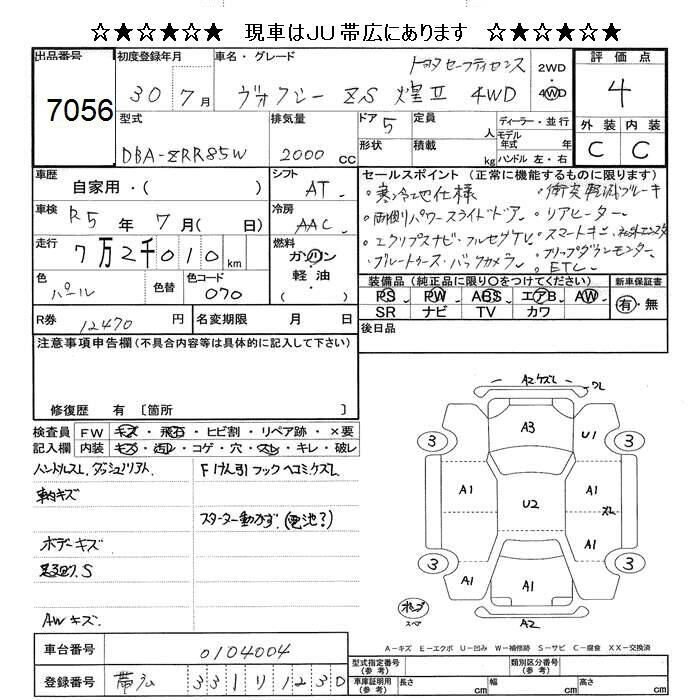 ☆★☆★☆★ 現車はJU帯広にあります ☆★☆★☆★
出品番号 7056
初度登録年月 30年 7月
車名・グレード トヨタセーフティセンス
ヴォクシー ZS 煌Ⅱ 4WD
2WD・4WD
評価点 4
外装 C 内装 C
型式 DBA-ZRR85W
排気量 2000 cc
ドア 5 形状
定員 人 積載 kg
ディーラー・並行
モデル年式 年
ハンドル 左・右
車歴 自家用・( )
シフト AT
車検 R5年 7月( 日)
冷房 AAC
走行 7万2千010 km
燃料 ガソリン・軽・油・( )
色 パール 色替
色コード 070
R券 12470 円
名変期限 月 日
セールスポイント (正常に機能するものに限ります)
・寒冷地仕様 ・衝突軽減ブレーキ
・両側パワースライドドア ・リアヒーター
・エクリプスナビ・フルセグTV ・スマートキー
・ブルートゥース・バックカメラ ・フリップダウンモニター
・ETC
装備品 (純正品に限り〇をつけてください)
PS PW ABS エアB AW
SR ナビ TV カワ
新車保証書 有・無
後日品
注意事項申告欄 (不具合内容等は具体的に記入して下さい)
修復歴 有 〔箇所 〕
検査員 FW キズ・飛石・ヒビ割・リペア跡・×要
記入欄 内装 キズ・汚れ・コゲ・穴・スレ・キレ・破レ
ハンドルスレ
車内キズ
ボデーキズ
AWキズ
Fけん引フックヘコミ・ケズレ
スターター動かず(電池?)
A2ケズレ ワレ
A3 U1
3 3
A1 U2 A1
ズレ
A1
3 3
A1 A1
A2
スペア
A-キズ E-エクボ U-凹み W-補修跡 S-サビ C-腐食 XX-交換済
車台番号 0104004
登録番号 帯広 331 1230
型式指定番号 (参考) 類別区分番号 (参考)
車庫証明用 (参考) 長さ cm 幅 cm 高さ cm